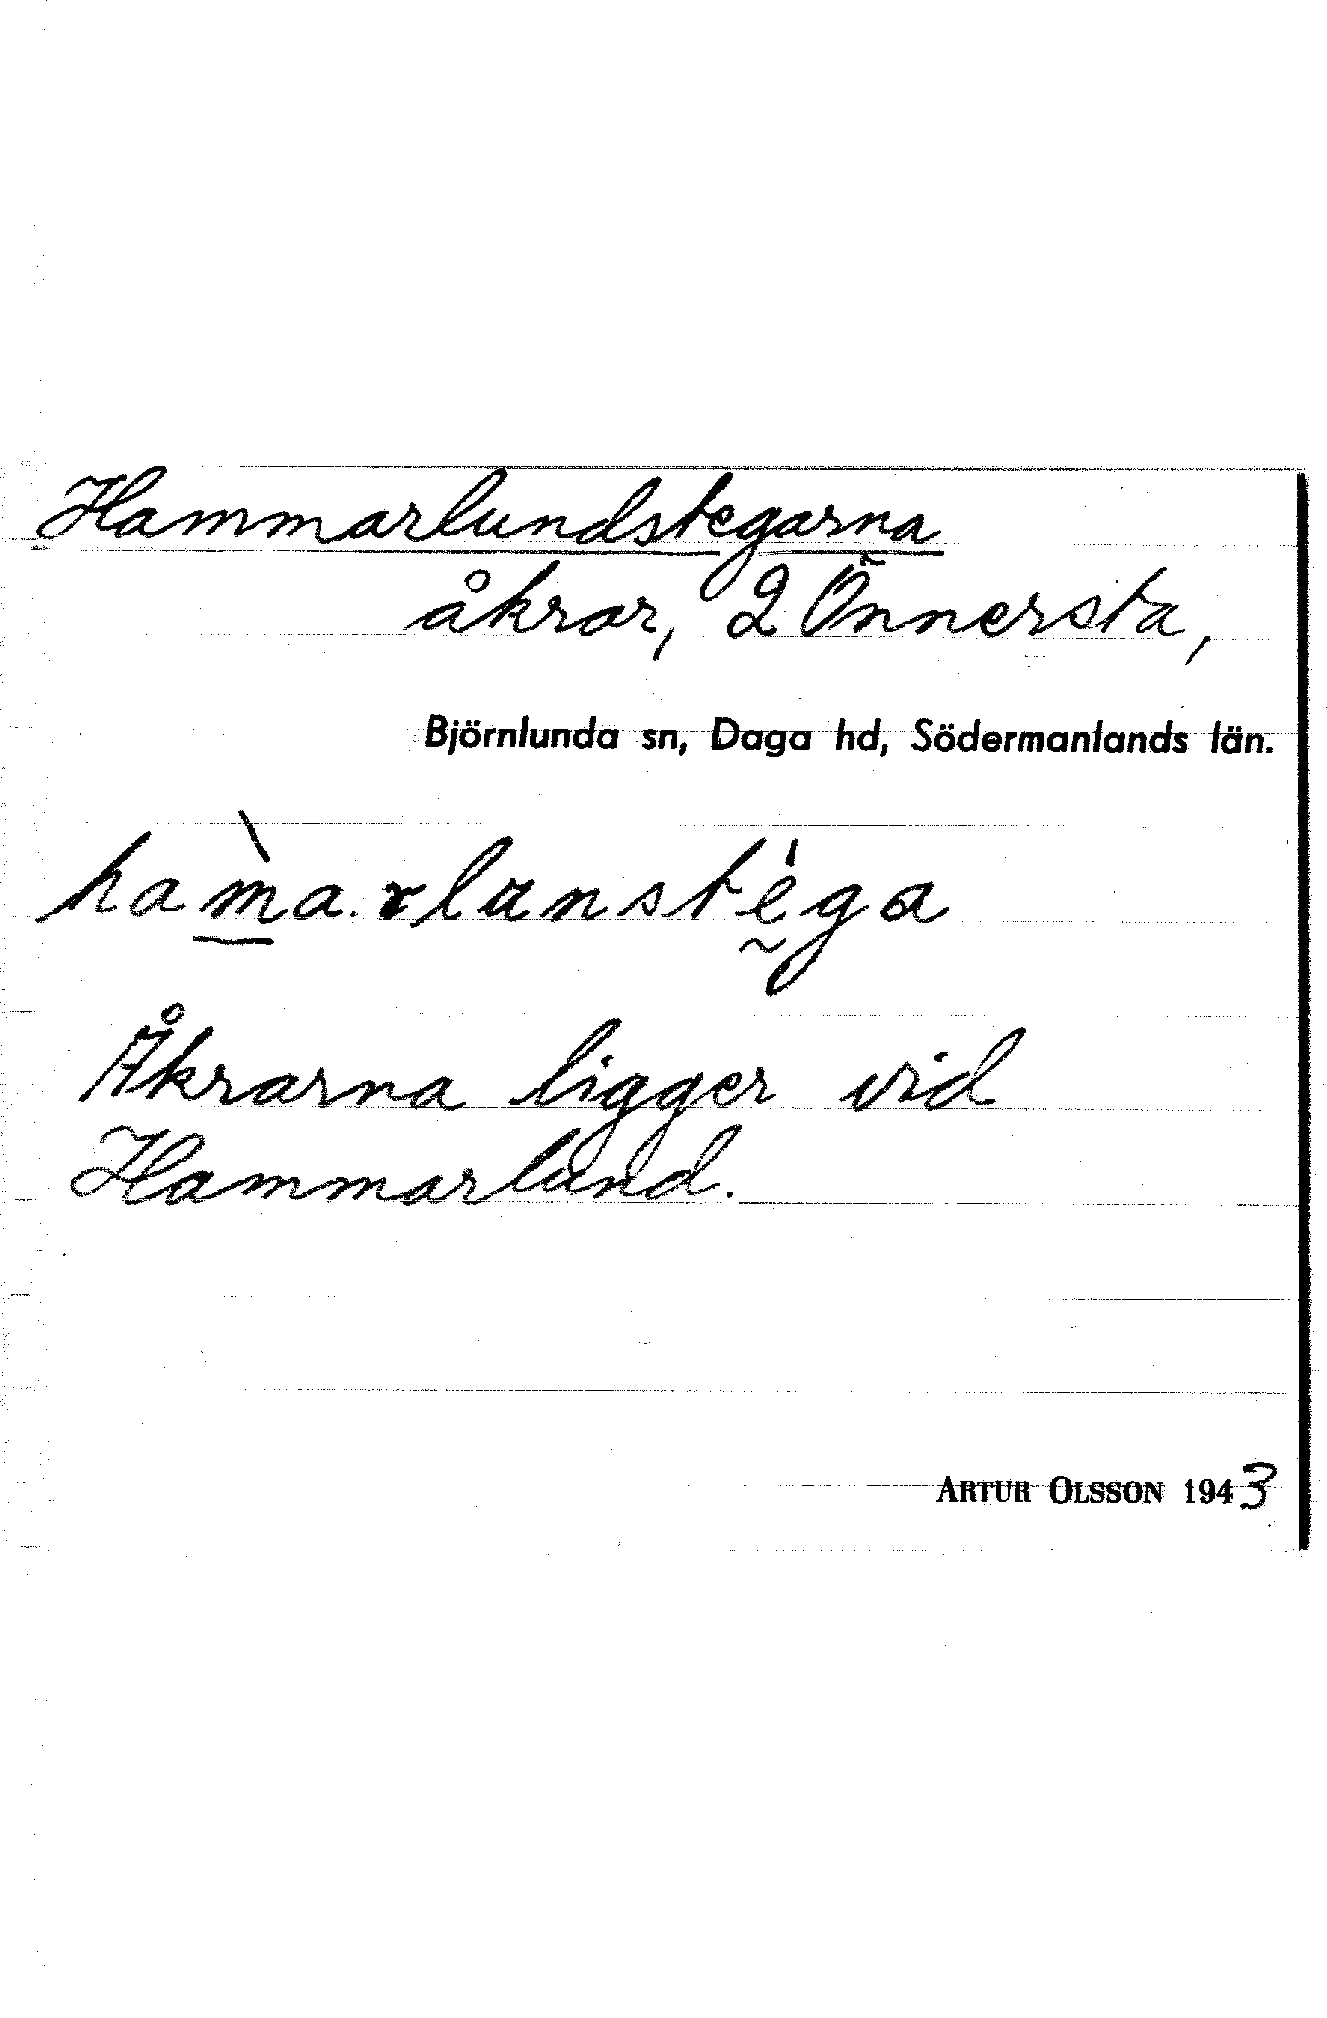 Hammarlundstegarna
åkrar, 2 Önnersta,
Björnlunda sn, Daga hd, Södermanlands län.
ham̲̀a.rlunstė́ga
Åkrarna ligger vid
Hammarlund.
ARTUR OLSSON 1943